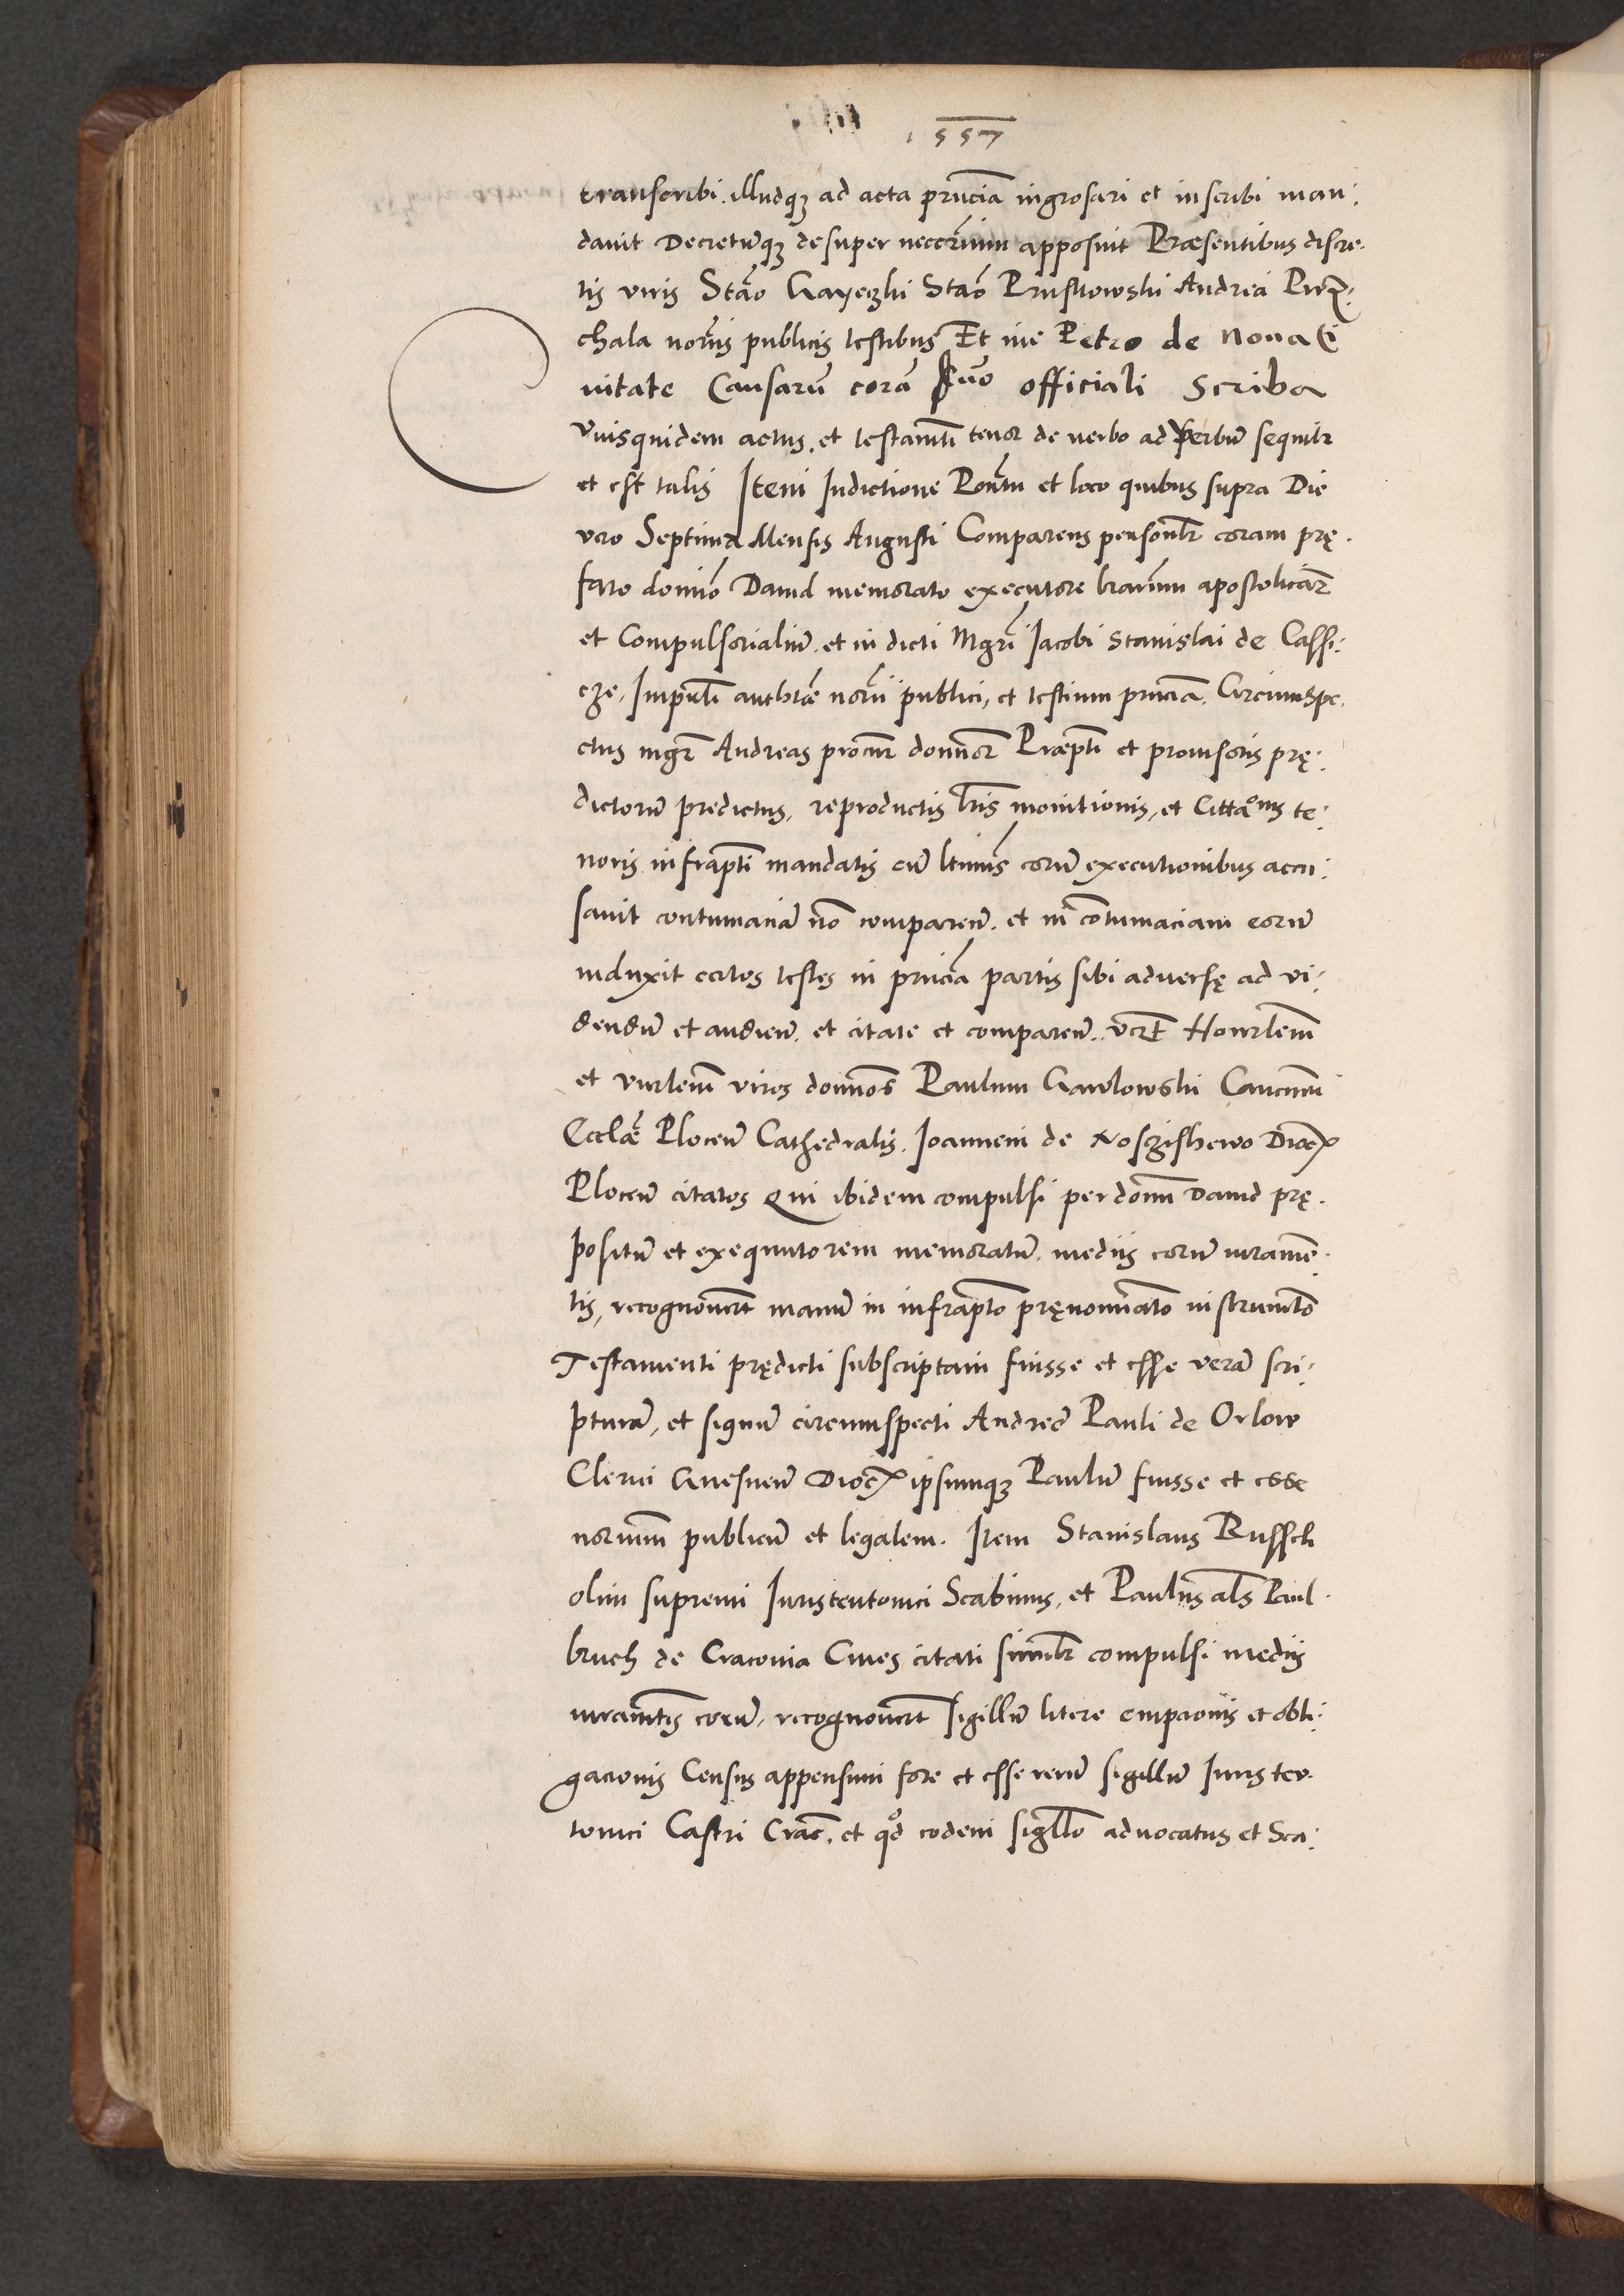 1557
transcribi. illudq3 ad acta pr̄nciā ingrosari et inscribi man:
davit Decretūq3 desuper necc̄rium apposuit Præsentibus discre.
tis viris Stāo Gayeczki Stāo Pruskowski Andrea
chala nōriis publicis testibus Et me Petro de Noua Ci
uitate Causarū corā suo officiali Scriba
Vuisquidem actus. et testam̄ti tenor de verbo ad verbū sequitr
et est talis Item Indictione Pon̄tu et loco quibus supra Die
vero Septima Mensis Augusti Comparens personlr coram prę.
fato domīo Dauid memorato executore lrarum apostolicar̄
et Compulsorialiū. et in dicti Mgr̄i Jacobi Stanislai de Cassi:
cze, Impūli auth̄te nōrii publici, et testium pr̄nciā. Circumspe.
ctus mgr̄ Andreas procur̄ domīor̄ Præpti et prouisoris prę:
dictorū predictus, reproductis lris monitionis, et Citta͠onis te:
noris infrapti mandatis cū ltimis eorū executionibus accu:
sauit contumaciā nō comparen̄. et in cōtumaciam eorū
induxit certos testes in pr̄nciā partis sibi aduersę ad vi:
dendū et audien̄. et citate et comparen̄. vcr̄t Honrlem̄
et vnrlem̄ viros domīos Paulum Gawlowski Canc̄um
Ecclæ Plocen̄ Cathedralis. Joannem de Noszishewo Dioc̄
Plocen̄ citatos Qui ibidem compulsi per dom̄ Dauid prę.
positū et exequutorem memoratū. mediis eorū iuramē.
tis, recognouer̄t manū in infrapto pręnomīato instrum̄to
Testamenti prędicti subscriptam fuisse et esse verā scri:
pturā, et signū circumspecti Andreę Pauli de Orlow
Clerici Gnesnen̄ Dioc̄ ipsumq3 Paulū fuisse et esse
norium̄ publicū et legalem. Item Stanislaus Russek
olim supremi Juristeutonici Scabinus, et Paulus als Paul.
bruch de Cracouia Ciues citati simlr compulsi mediis
iuram̄tis eorū, recognouer̄t Sigillū litere empcionis et obli:
gacionis Census appensum fore et esse verū sigillū Juris teu.
tonici Castri Crac̄. et qd eodem sigillo aduocatus et Sca: